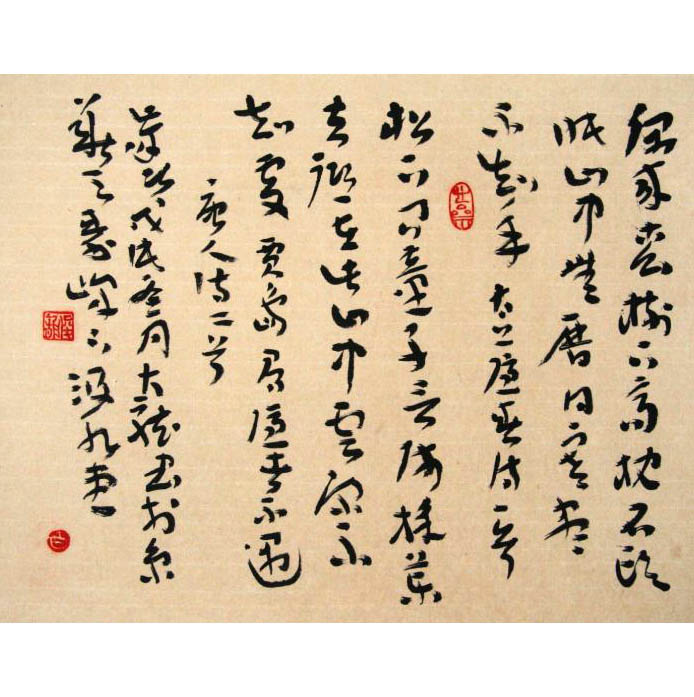 偶來松樹下高枕石頭
眠山中無曆日寒盡
不知年 太上隱者詩一首
松下問童子言師採藥
去祇在此山中雲深不
知處 賈島尋隱者不遇
唐人詩二首
月大龍書於京